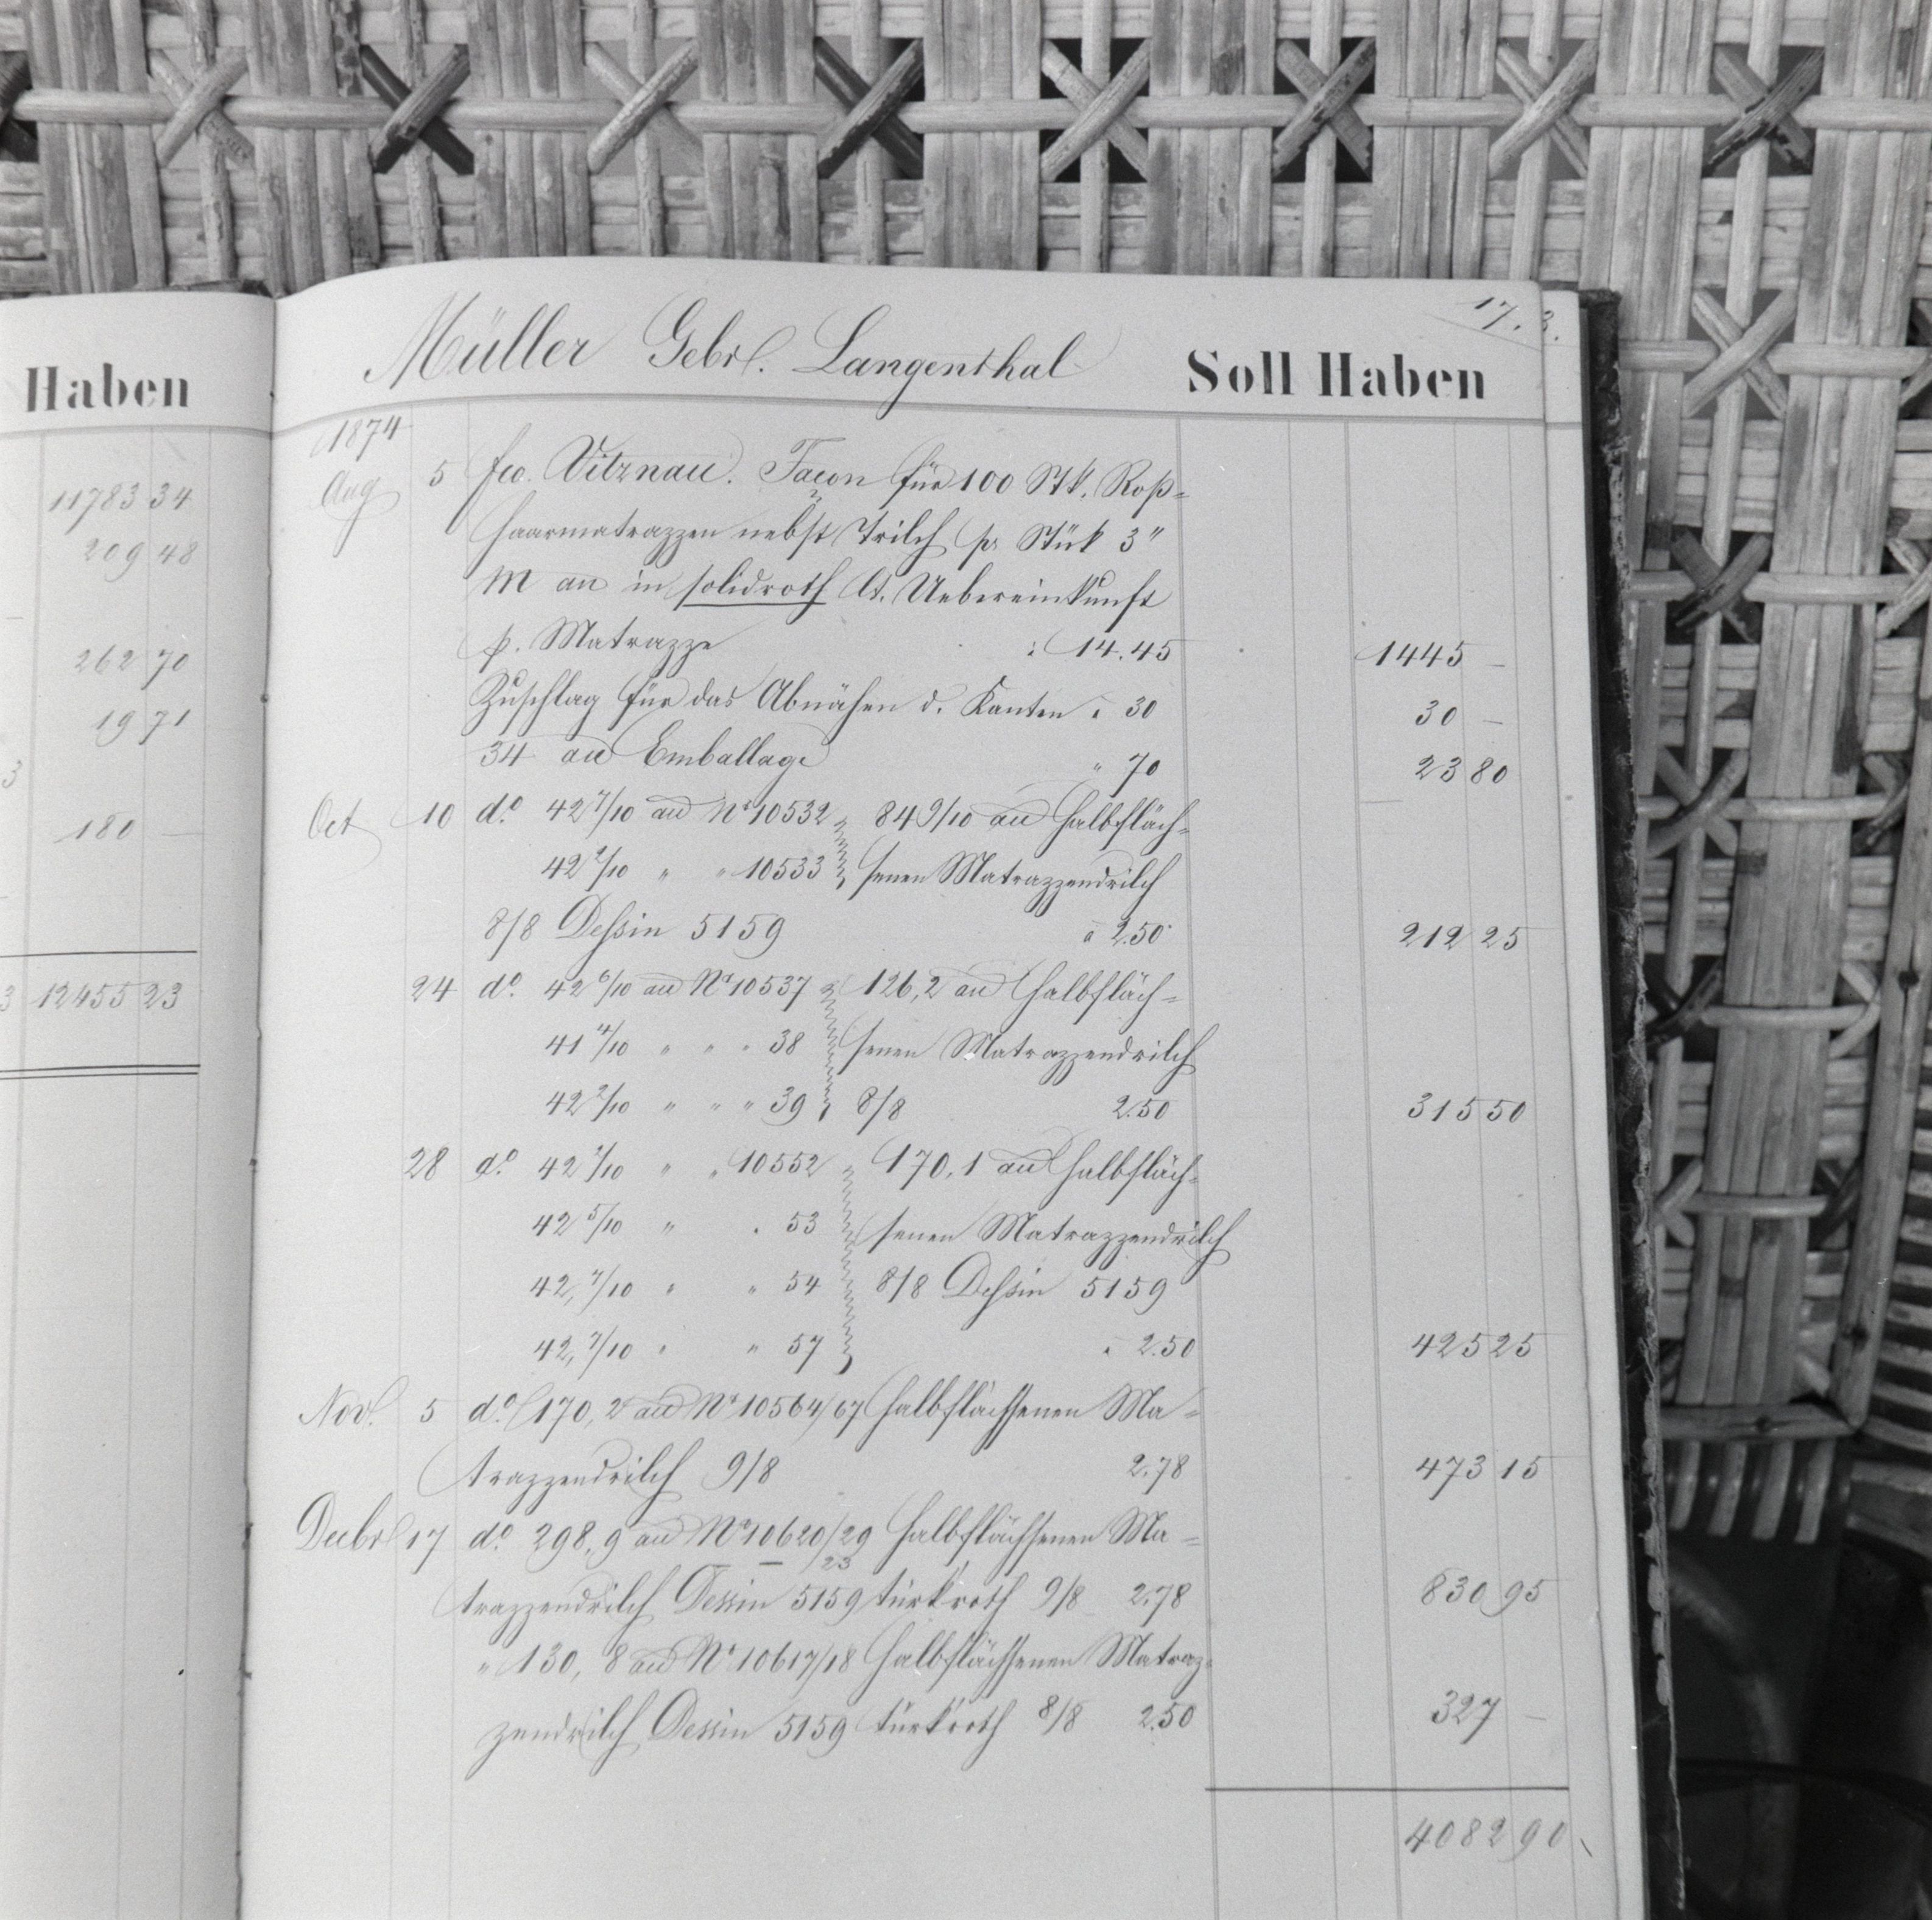 Haben
11783 34
209 48
262 70
19 71
3
180 —
3 12455 23
17. 3.
Müller Gebr. Langenthal Soll Haben
1874
Aug 5 fco. Vitznau. Facon für 100 Stk. Roß=
haarmatrazzen nebst Trilch pr Stük 3"
m au in solidroth lt. Uebereinkunft
p. Matrazze 14.45 1445 —
Zuschlag für das Abnähen d. Kanten " 30 30 —
34 au Emballage " 70 23 80
Oct 10 do. 42 7/10 au No 10532 84 9/10 au halbfläch=
42 2/10 " " 10533 senen Matrazzendrilch
8/8 Dessin 5159 à 2.50 212 25
24 do. 42 6/10 au No 10537 126,2 au halbfläch=
41 4/10 " " " 38 senen Matrazzendrilch
42 2/10 " " " 39 8/8 2.50 315 50
28 do. 42 2/10 " " 10552 170,1 au halbfläch=
42 5/10 " " 53 senen Matrazzendrilch
42,7/10 " " 54 8/8 Dessin 5159
42,7/10 " " 57 " 2.50 425 25
Nov. 5 do. 170,2 au No 10564/67 halbflächsenen Ma=
trazzendrilch 9/8 2.78 473 15
Decbr 17 do. 298,9 au No 10620/29 halbflächsenen Ma=
23
trazzendrilch Dessin 5159 türkroth 9/8 2.78 830 95
" 130,8 au No 10617/18 halbflächsenen Matraz=
zendrilch Dessin 5159 türkroth 8/8 2.50 327 —
4082 90